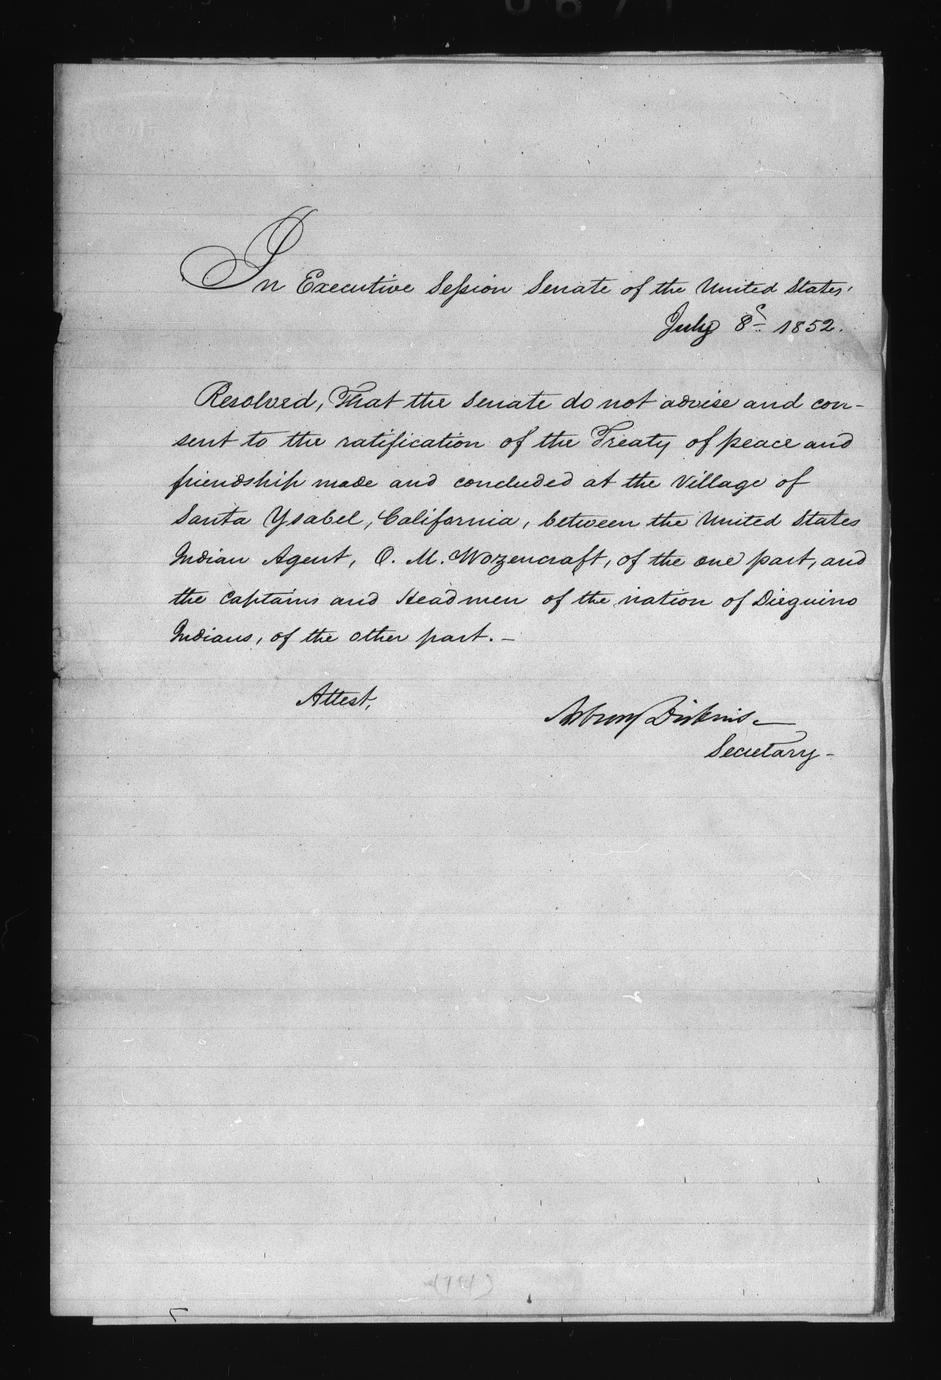 In Executive Session Senate of the United States,
July 8. 1852.
Resolved, That the Senate do not advise and con-
sent to the ratification of the Treaty of peace and
friendship made and concluded at the Village of
Santa Ysabel, California, between the United States
Indian Agent, O. M. Wozencraft, of the one part, and
the Captains and Headmen of the nation of Dieguino
Indians, of the other part. –
Attest,
Asbury Dickins
Secretary –